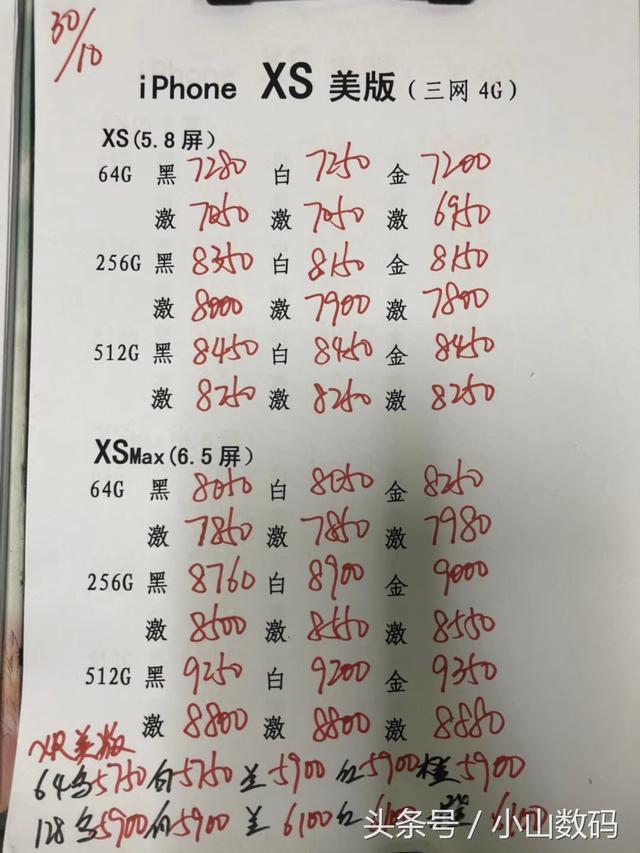 30/10
iPhone XS 美版(三网 4G)
XS(5.8屏)
64G 黑 7280 白 7250 金 7200
激 7050 激 7050 激 6950
256G 黑 8350 白 8150 金 8150
激 8000 激 7900 激 7800
512G 黑 8450 白 8450 金 8450
激 8250 激 8250 激 8250
XSMax(6.5屏)
64G 黑 8050 白 8050 金 8250
激 7850 激 7850 激 7980
256G 黑 8760 白 8900 金 9000
激 8500 激 8550 激 8550
512G 黑 9250 白 9200 金 9350
激 8800 激 8800 激 8880
XR美版
64 5750 白 5750 兰 5900 红 5900 橙 5900
128 5900 白 5900 兰 6100 红 6100
头条号 / 小山数码